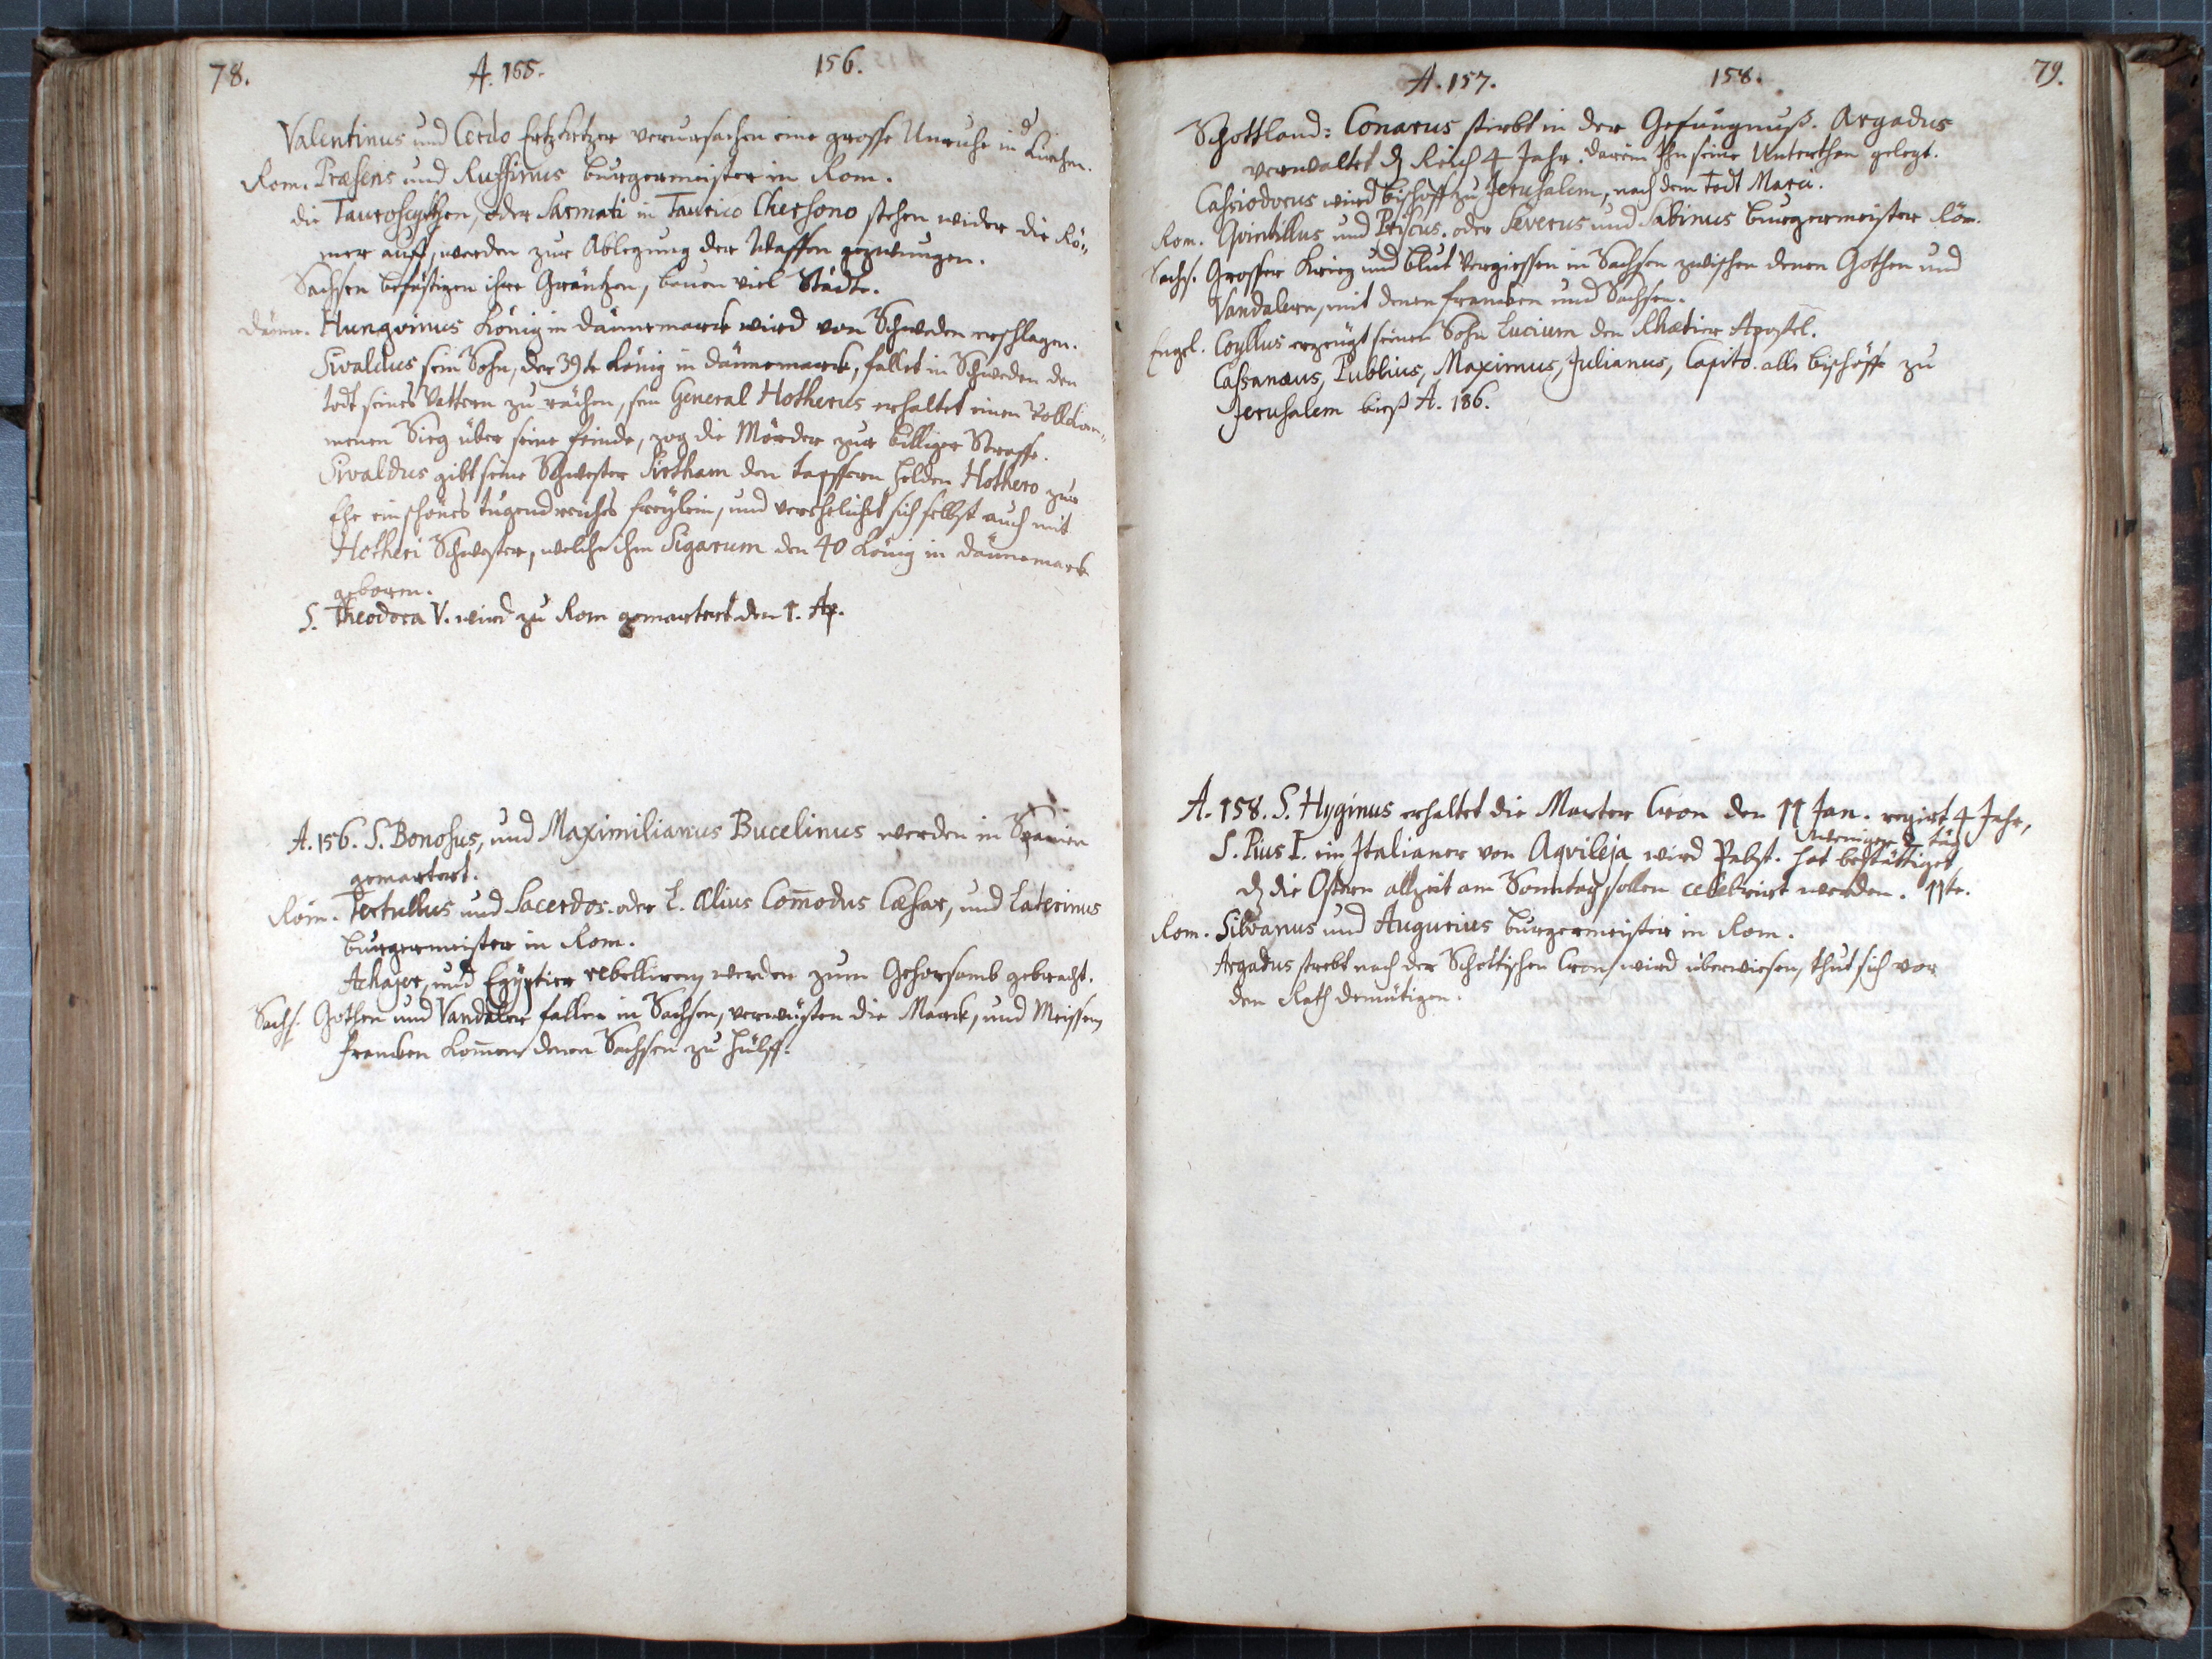 78. A. 155. 156.
Valentinus und Cerdo Ertzketzer verursachen eine grosse Unruhe in d Kirchen.
Rom. Præsens und Ruffinus Burgermeister in Rom.
die Tauroscythen, oder Sarmati in Taurico Chersono stehen wider die Rö-
mer auff, werden zur Ablegung der Waffen gezwungen.
Sachsen befästigen ihre Gräntzen, bauen viel Städte.
Dänne. Hungvinus König in Dännemarck wird von Schweden erschlagen.
Sivaldus sein Sohn, der 39te König in Dännemarck, fallet in Schweden den
todt seines Vattern zu rächen, sein General Hotherus erhaltet einen Vollkom-
menen Sieg über seine feinde, zog die Mörder zur billiger Straffe.
Sivaldus gibt seine Schwester Sirtham den tapffern Helden Hothero zur
Ehe ein schönes tugendreiches freylein, und verehelicht sich selbst auch mit
Hotheri Schwester, welche ihm Sigarum den 40 König in Dännemark
geboren.
S. Theodora V. wird zu Rom gemartert den 1. Ap.
A. 156. S. Bonosus, und Maximilianus Bucelinus werden in Spanien
gemartert.
Röm. Tertullus und Sacerdos. oder L. Ælius Com̄odus Cæsar, und Laterinus
Burgermeister in Rom.
Achajer, und Egyptier rebelliren, werden zum Gehorsamb gebracht.
Sachs. Gothen und Vandaler fallen in Sachsen, verwüsten die Marck, und Meissen,
francken kom̄en denen Sachsen zu hülff.
A. 157. 158. 79.
Schottland: Conarus stirbt in der Gefängnuß. Argadus
verwaltet dz Reich 4 Jahr. darein Ihn seine Unterthan gelegt.
Cassiodorus wird Bischoff zu Jerusalem, nach dem Todt Marci.
Rom. Qvintillus und Priscus. oder Severus und Sabinus Burgermeister Röm.
Sachs. Grosser Krieg und blut Vergiessen in Sachsen zwischen denen Gothen und
Vandalern, mit denen francken und Sachsen.
Engel. Coyllus erzeugt seinen Sohn Lucium den Rhætier Apostel.
Cassanæus, Publius, Maximus, Julianus, Capito. alle bischöffe zu
Jerusalem bieß A. 186.
A. 158. S. Hyginus erhaltet die Marter Cron den 11 Jan. regirt 4 Jahr,
weniger 2 täg
S. Pius I. ein Italianer von Aqvileja wird Pabst. hat bestättiget
dz die Ostern allzeit am Sonntag sollen celebrirt werden. 11te.
Rom. Silvanus und Augurius Burgermeister in Rom.
Argadus strebt nach der Schottischen Cron, wird überwiesen, thut sich vor
den Rath demütigen.